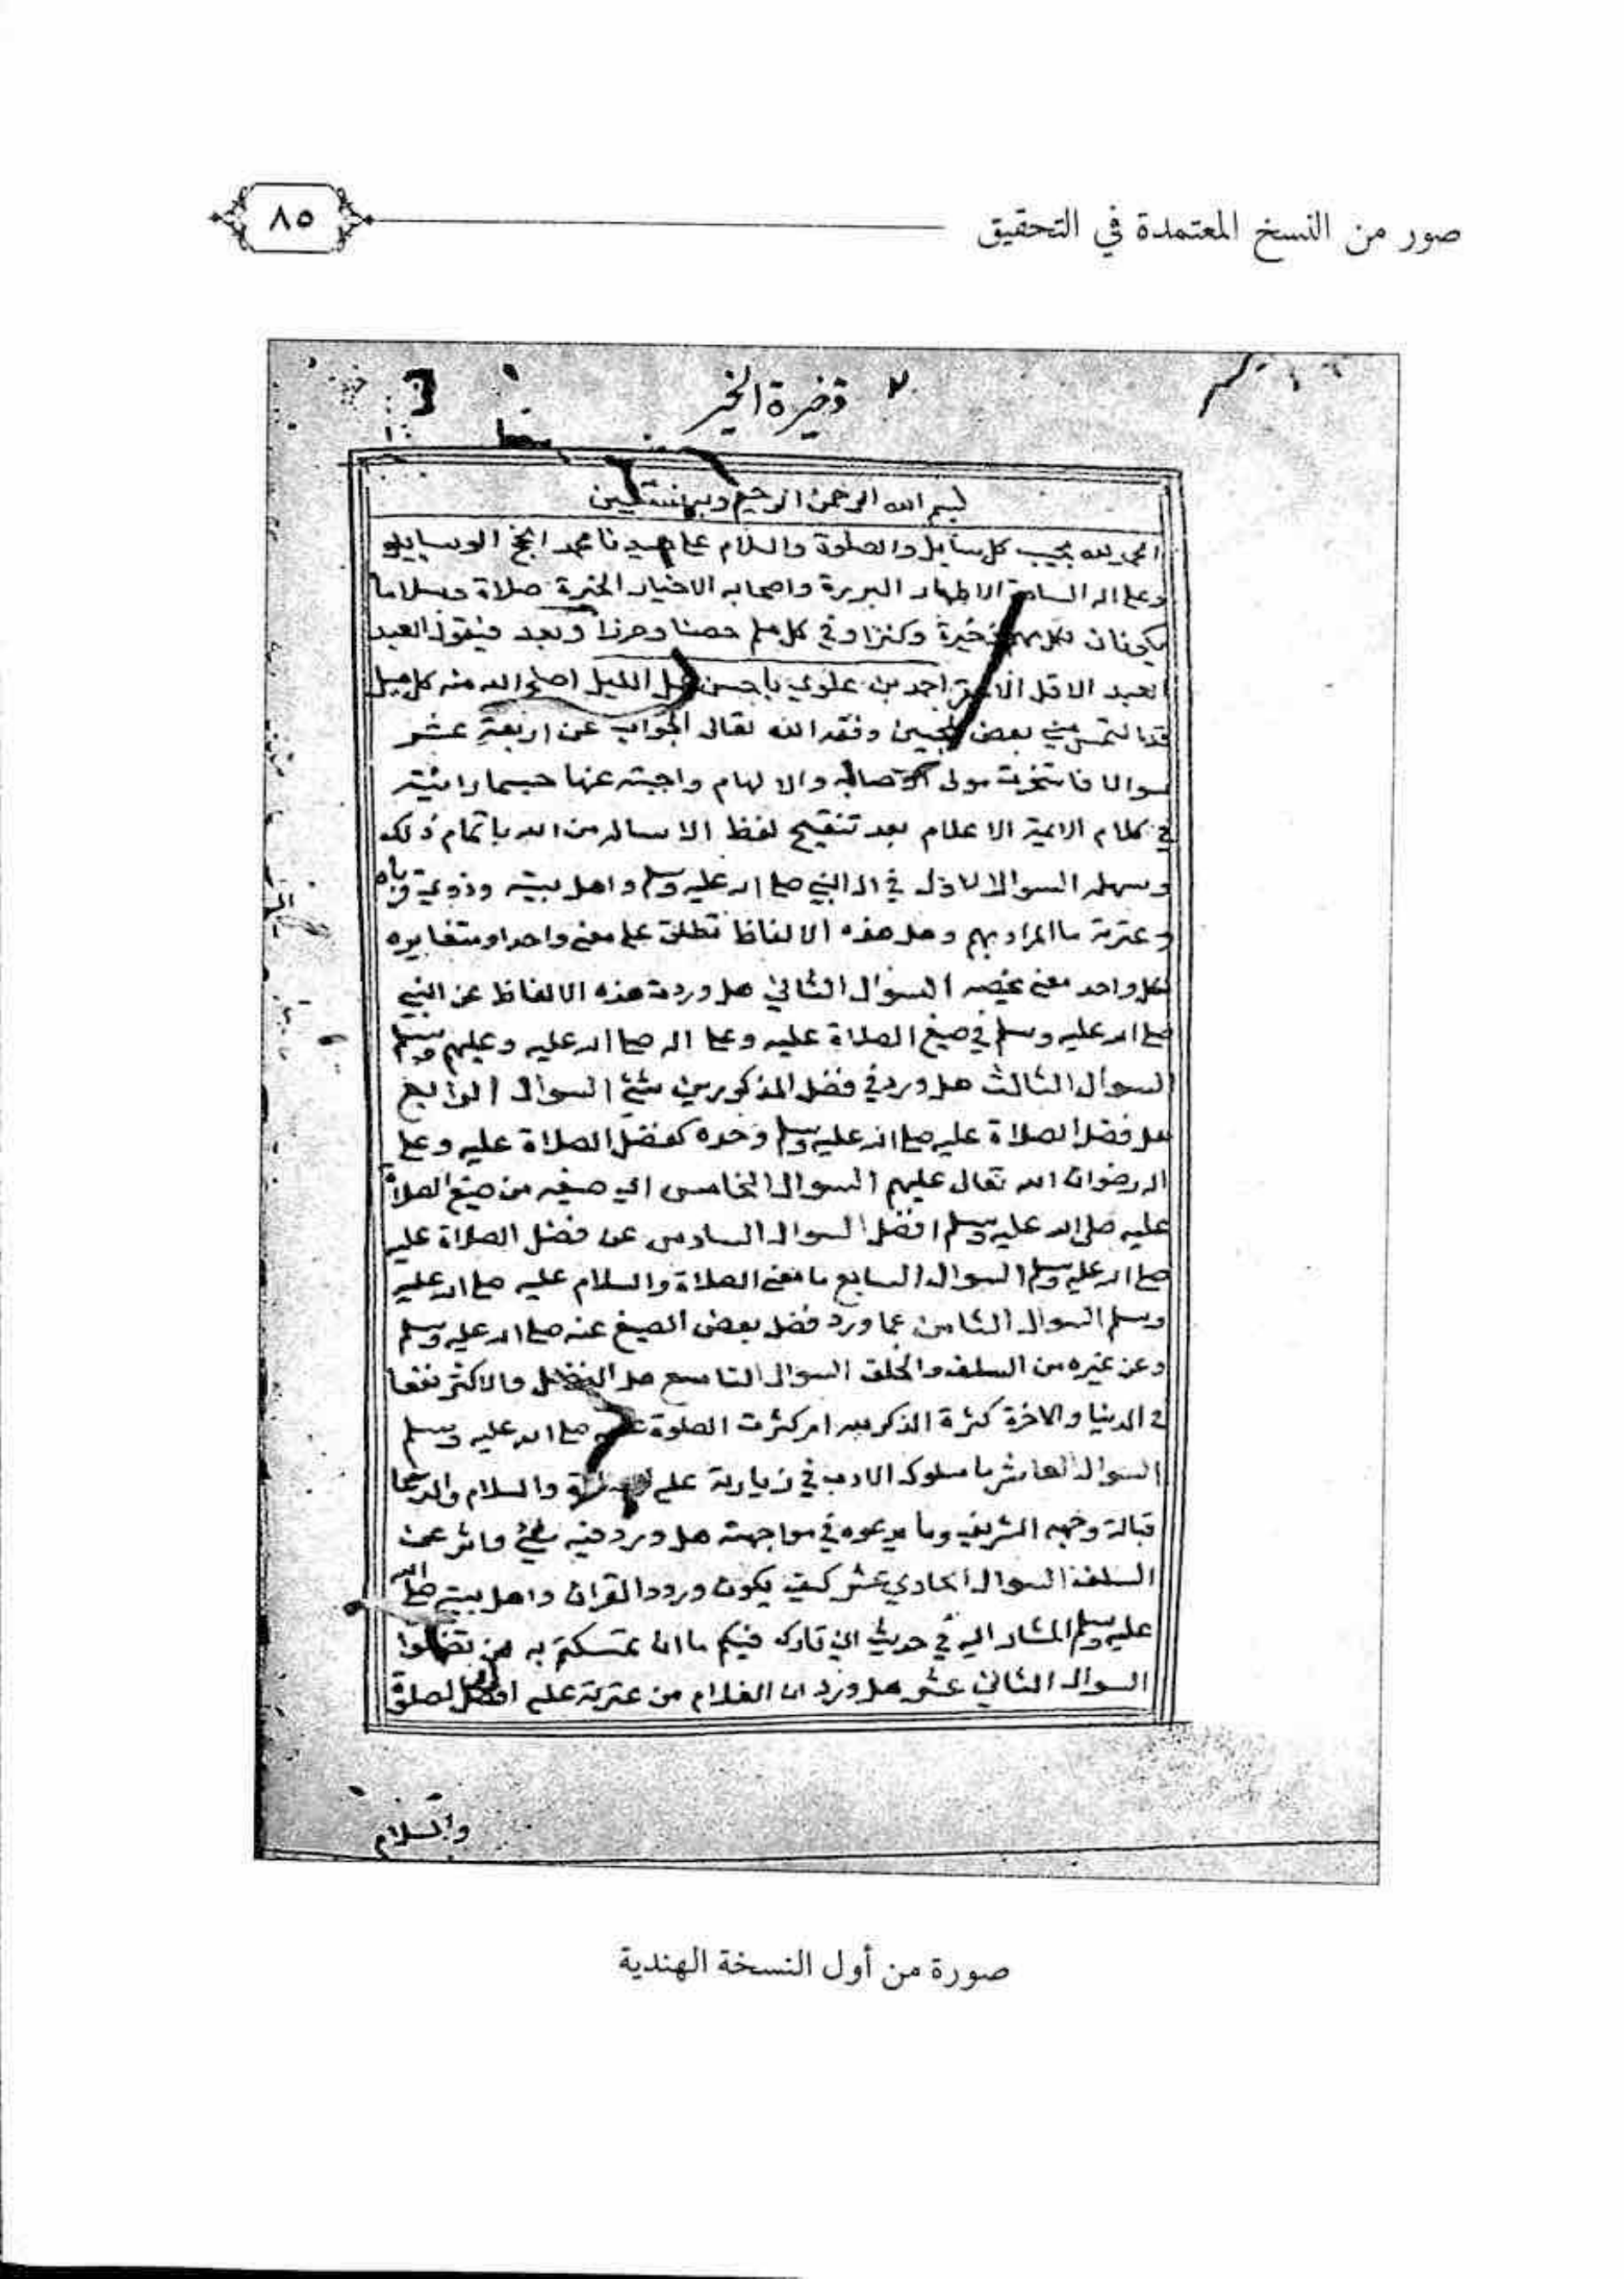 صور من النسخ المعتمدة في التحقيق
٨٥
ذخيرة الخير
بسم الله الرحمن الرحيم وبه نستعين
الحمد لله مجيب كل سايل والصلوة والسلام على سيدنا محمد انجح الوسايل
وعلى اله السادة الاطهار البررة واصحابه الاخيار الخيرة صلاة وسلاما
يكونان لكل مهم ذخيرة وكنزا وفي كل ملم حصنا وحرزا وبعد فيقول العبد
العبد الاقل احمد بن علوي باحسن جمل الليل اصلح الله منه كل ميل
قد التمس مني بعض المحبين وفقه الله تعالى الجواب عن اربعة عشر
سوالا فاستخرت مولى والالهام واجبته عنها حسبما رائيته
في كلام الايمة الاعلام بعد تنقيح لفظ الاساله من الله باتمام ذلك
وسهله السوال الاول في ال النبي صلى الله عليه وسلم واهل بيته وذوي قرباه
وعترته ما المراد بهم وهل هذه الالفاظ تطلق على معنى واحد او متغايره
لكل واحد معنى يخصه السوال الثاني هل وردت هذه الالفاظ عن النبي
صلى الله عليه وسلم في صيغ الصلاة عليه وعلى اله صلى الله عليه وعليهم وسلم
السوال الثالث هل ورد في فضل المذكورين شئ السوال الرابع
هل فضل الصلاة عليه صلى الله عليه وسلم وحده كفضل الصلاة عليه وعلى
اله رضوان الله تعالى عليهم السوال الخامس اي صيغه من صيغ الصلاة
عليه صلى الله عليه وسلم افضل السوال السادس عن فضل الصلاة عليه
صلى الله عليه وسلم السوال السابع ما معنى الصلاة والسلام عليه صلى الله عليه
وسلم السوال الثامن عما ورد فضل بعض الصيغ عنه صلى الله عليه وسلم
وعن غيره من السلف والخلف السوال التاسع هل الافضل والاكثر نفعا
في الدنيا والاخرة كثرة الذكر لله ام كثرت الصلوة عليه صلى الله عليه وسلم
السوال العاشر ما سلوك الادب في زيارته عليه والسلام والدعا
قبالة وجهه الشريف وما يدعوه في مواجهته هل ورد فيه شئ واثر عن
السلف السوال الحادي عشر كيف يكون ورود القران واهل بيته صلى الله
عليه وسلم المشار اليه في حديث اني تارك فيكم ما ان تمسكتم به لن تضلوا
السوال الثاني عشر هل ورد ان الغلام من عترته عليه افضل الصلوة
والسلام
صورة من أول النسخة الهندية